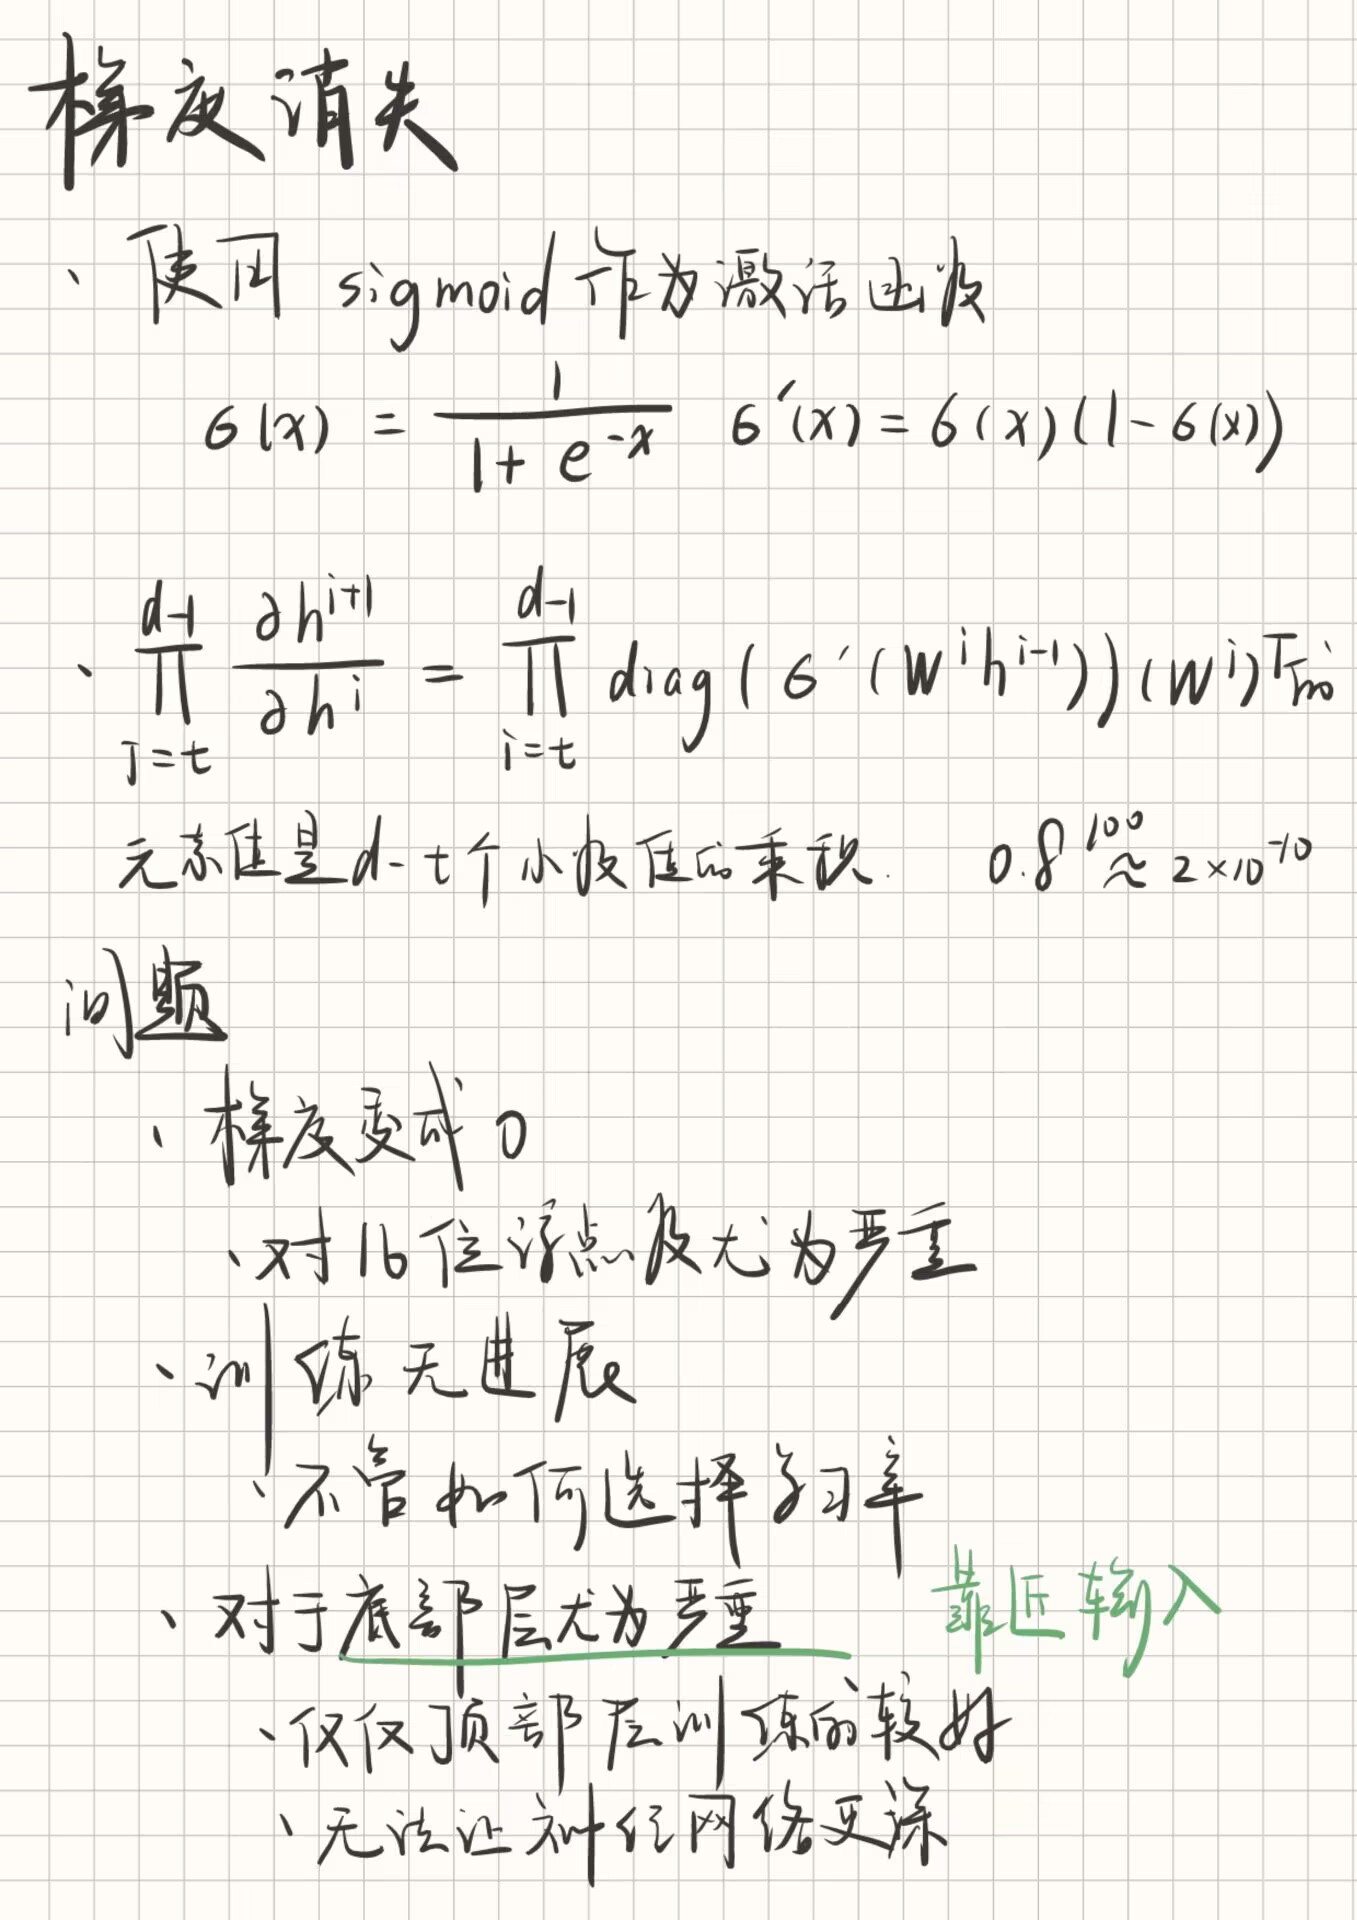 梯度消失
、使用 sigmoid 作为激活函数
σ(x) = 1/(1+e^{-x}) σ'(x) = σ(x)(1-σ(x))
、∏_{j=t}^{d-1} ∂h^{i+1}/∂h^i = ∏_{i=t}^{d-1} diag(σ'(W^i h^{i-1}))(W^i)^T 的
元素值是 d-t 个小数值的乘积. 0.8^{100} ≈ 2×10^{-10}
问题
、梯度变成 0
、对16位浮点数尤为严重
、训练无进展
、不管如何选择学习率
、对于底部层尤为严重 靠近输入
、仅仅顶部层训练的较好
、无法让神经网络更深